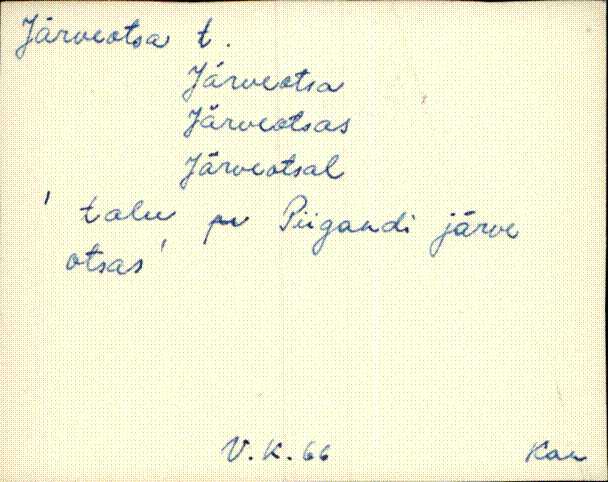 Järveotsa t.
Järveotsa
Järveotsas
Järveotsal
' talu Piigandi järve
otsas '
V.K. 66 Kan